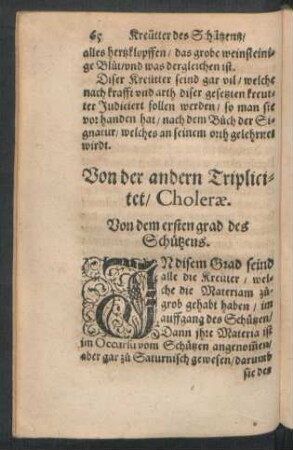 65 Kreütter des Schützens/
alles hertzklopffen/das grobe weinsteini-
ge Blüt/vnd was dergleichen ist.
Diser Kreütter seind gar vil/welche
nach krafft vnd arth diser gesetzten kreut-
ter Judiciert sollen werden/so man sie
vorhanden hat/nach dem Büch der Si-
gnatur/welches an seinem orth gelehrnet
wirdt.
Von der andern Triplici-
tet/Choleræ.
Von dem ersten grad des
Schützens.
IN disem Grad seind
alle die Kreüter/wel-
che die Materiam zü-
grob gehabt haben/im
auffgang des Schützen/
Dann jhre Materia ist
im Occasu vom Schützen angenom̃en/
aber gar zü Saturnisch gewesen/darumb
sie den